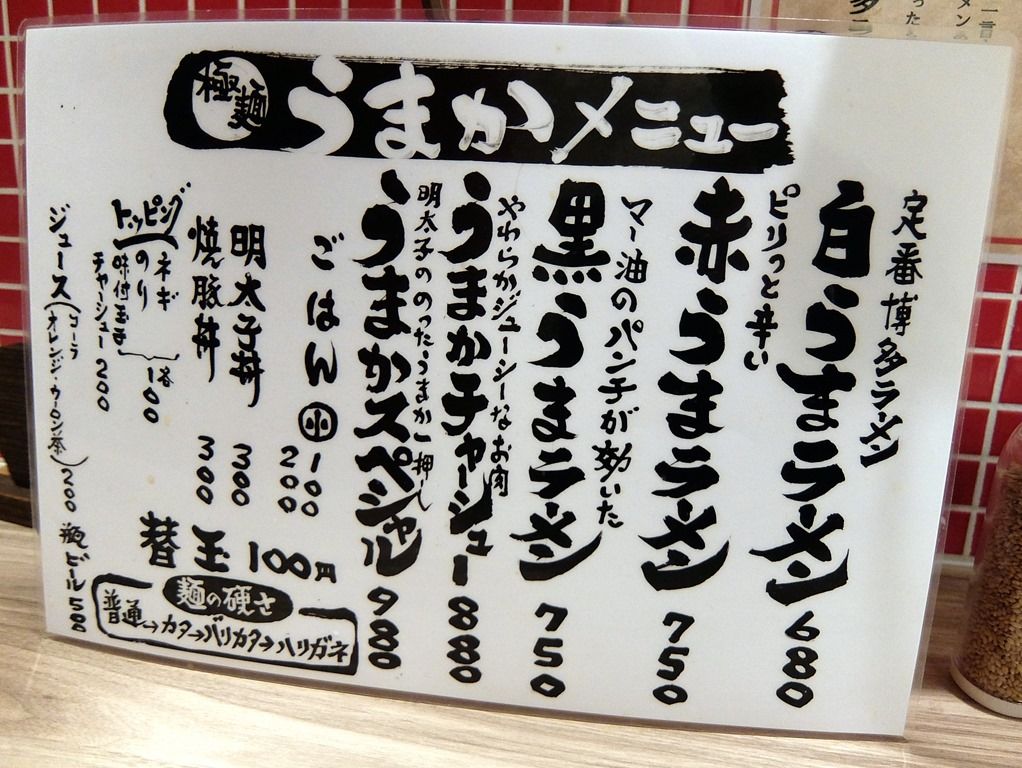 極麺
うまかメニュー
定番博多ラーメン
白うまラーメン 680
ピリっと辛い
赤うまラーメン 750
マー油のパンチが効いた
黒うまラーメン 750
やわらかジューシーなお肉
うまかチャーシュー 880
明太子ののったうまか一押し
うまかスペシャル 980
ごはん 小 100
200
明太子丼 300
焼豚丼 300
替玉 100円
トッピング
ネギ
のり
味付玉子
各100
チャーシュー 200
麺の硬さ
普通→カタ→バリカタ→ハリガネ
ジュース(コーラ オレンジ・ウーロン茶)200 瓶ビール 500